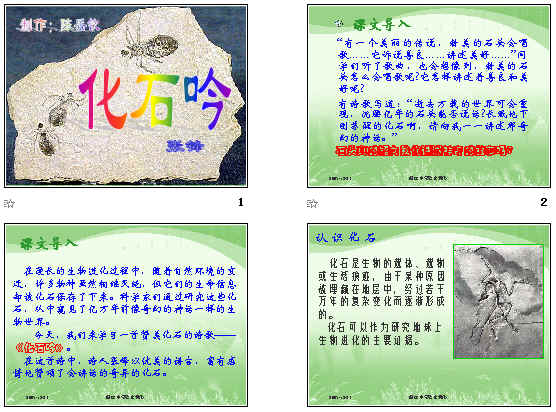 制作：陈岳钦
化石吟
张锋
1
课文导入
“有一个美丽的传说，精美的石头会唱
歌……它诉说善良……讲述美好……”同
学们听了歌曲，也会想像到，精美的石
头怎么会唱歌呢？它怎样讲述着善良和美
好呢？
有诗歌写道：“逝去万载的世界可会重
现，沉睡亿年的石头能否说话？长眠地下
刚苏醒的化石啊，请向我一一讲述那奇
幻的神话。”
2
课文导入
在漫长的生物进化过程中，随着自然环境的变
迁，许多物种虽然相继灭绝，但它们的生命信息
却被化石保存了下来。科学家们通过研究这些化
石，从中窥见了亿万年前像奇幻的神话一样的生
物世界。
今天，我们来学习一首赞美化石的诗歌——
《化石吟》。
在这首诗中，诗人张锋以优美的语言，富有感
情地赞颂了会讲话的奇异的化石。
认识化石
化石是生物的遗体、遗物
或生活痕迹，由于某种原因
被埋藏在地层中，经过若干
万年的复杂变化而逐渐形成
的。
化石可以作为研究地球上
生物进化的主要证据。